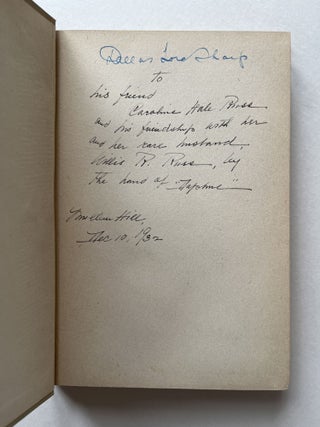 Dallas Lore Sharp
to
his friend
Caroline Hale Russ
and his friendship with her
and her rare husband
Willis R. Russ, by
the hand of "Daphne"
Hill,
Dec 10, 1932